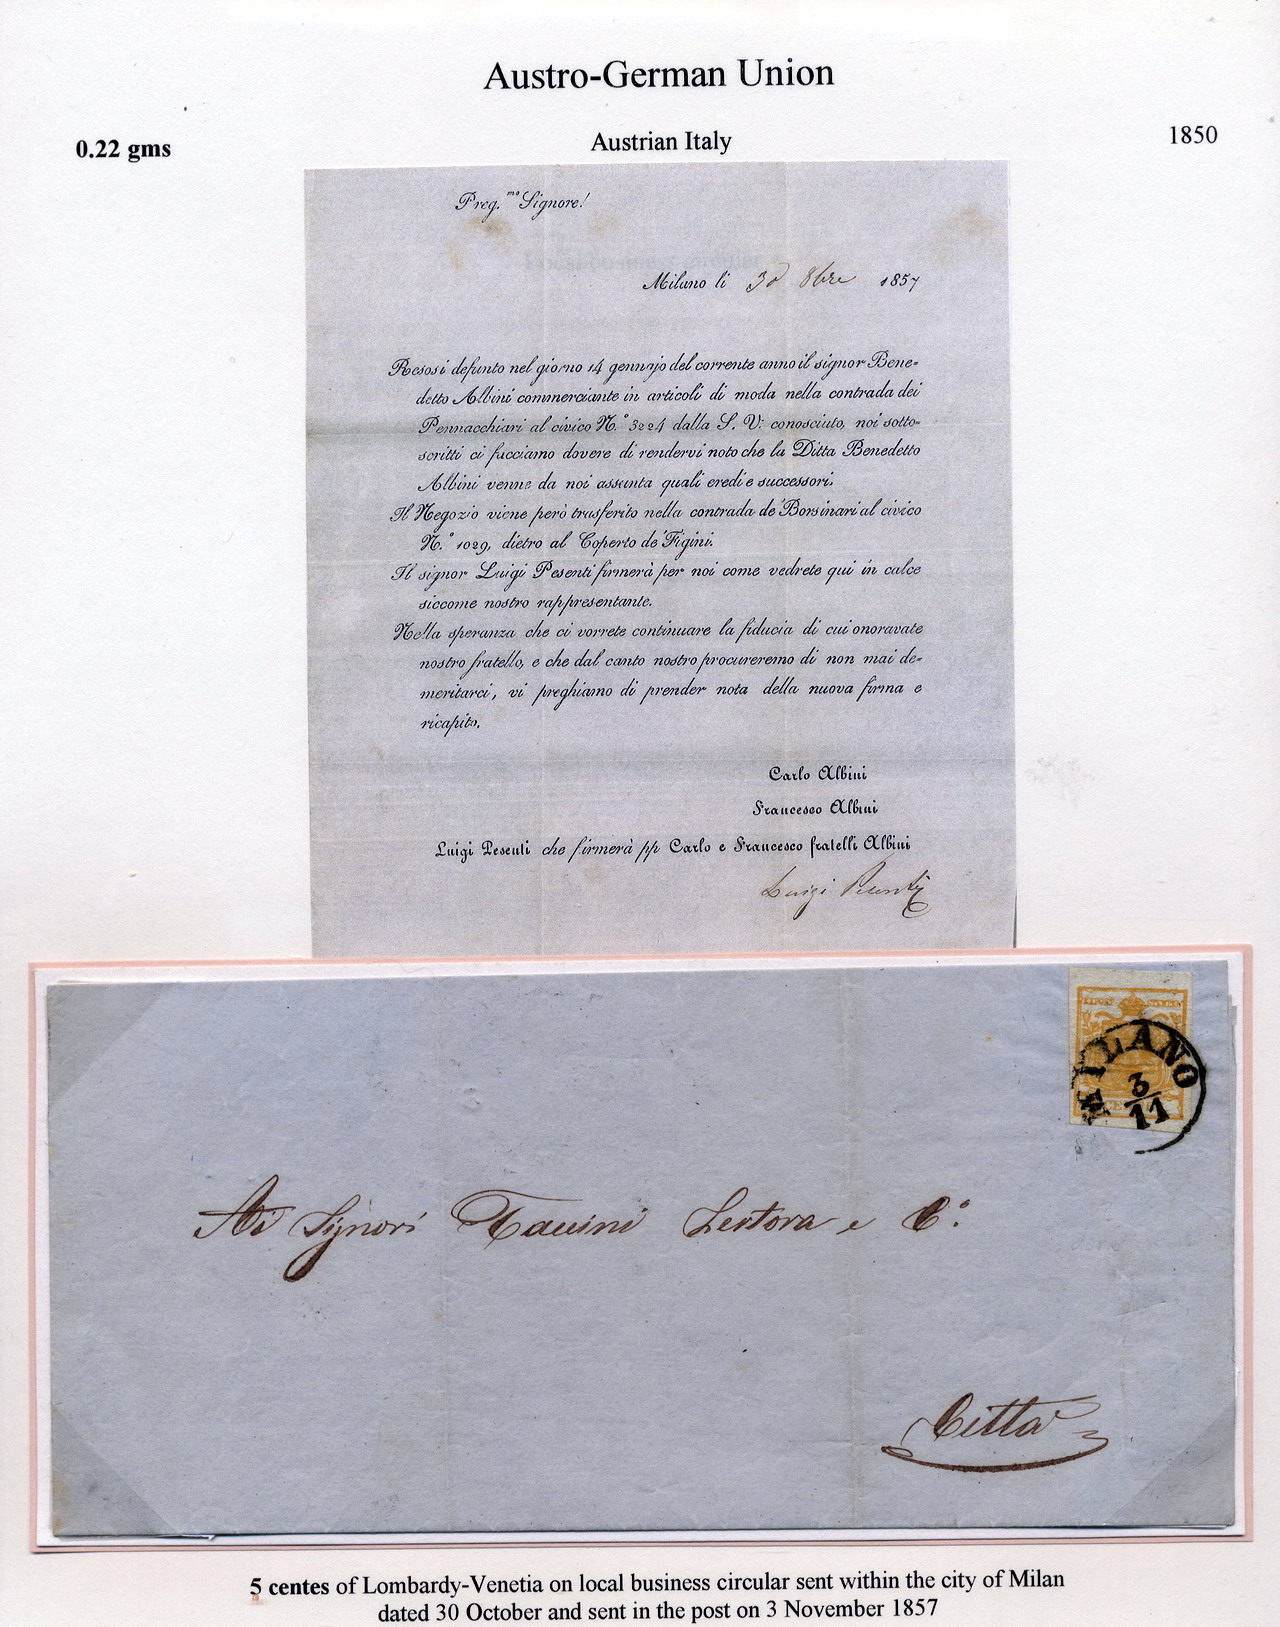 Austro-German Union
0.22 gms
Austrian Italy
1850
Preg.mo Signore!
Milano li 30 8bre 1857
Resosi defunto nel giorno 14 gennajo del corrente anno il signor Bene-
detto Albini commerciante in articoli di moda nella contrada dei
Pennacchiari al civico N.° 3224 dalla S. V. conosciuto, noi sotto-
scritti ci facciamo dovere di rendervi noto che la Ditta Benedetto
Albini venne da noi assunta quali eredi e successori.
Il Negozio viene però trasferito nella contrada de' Borsinari al civico
N.° 1029, dietro al Coperto de' Figini.
Il signor Luigi Pesenti firmerà per noi come vedrete qui in calce
siccome nostro rappresentante.
Nella speranza che ci vorrete continuare la fiducia di cui onoravate
nostro fratello, e che dal canto nostro procureremo di non mai de-
meritarci, vi preghiamo di prender nota della nuova firma e
ricapito.
Carlo Albini
Francesco Albini
Luigi Pesenti che firmerà pp Carlo e Francesco fratelli Albini
Luigi Pesenti
MILANO
3/11
Ai Signori e C.°
Città
5 centes of Lombardy-Venetia on local business circular sent within the city of Milan
dated 30 October and sent in the post on 3 November 1857